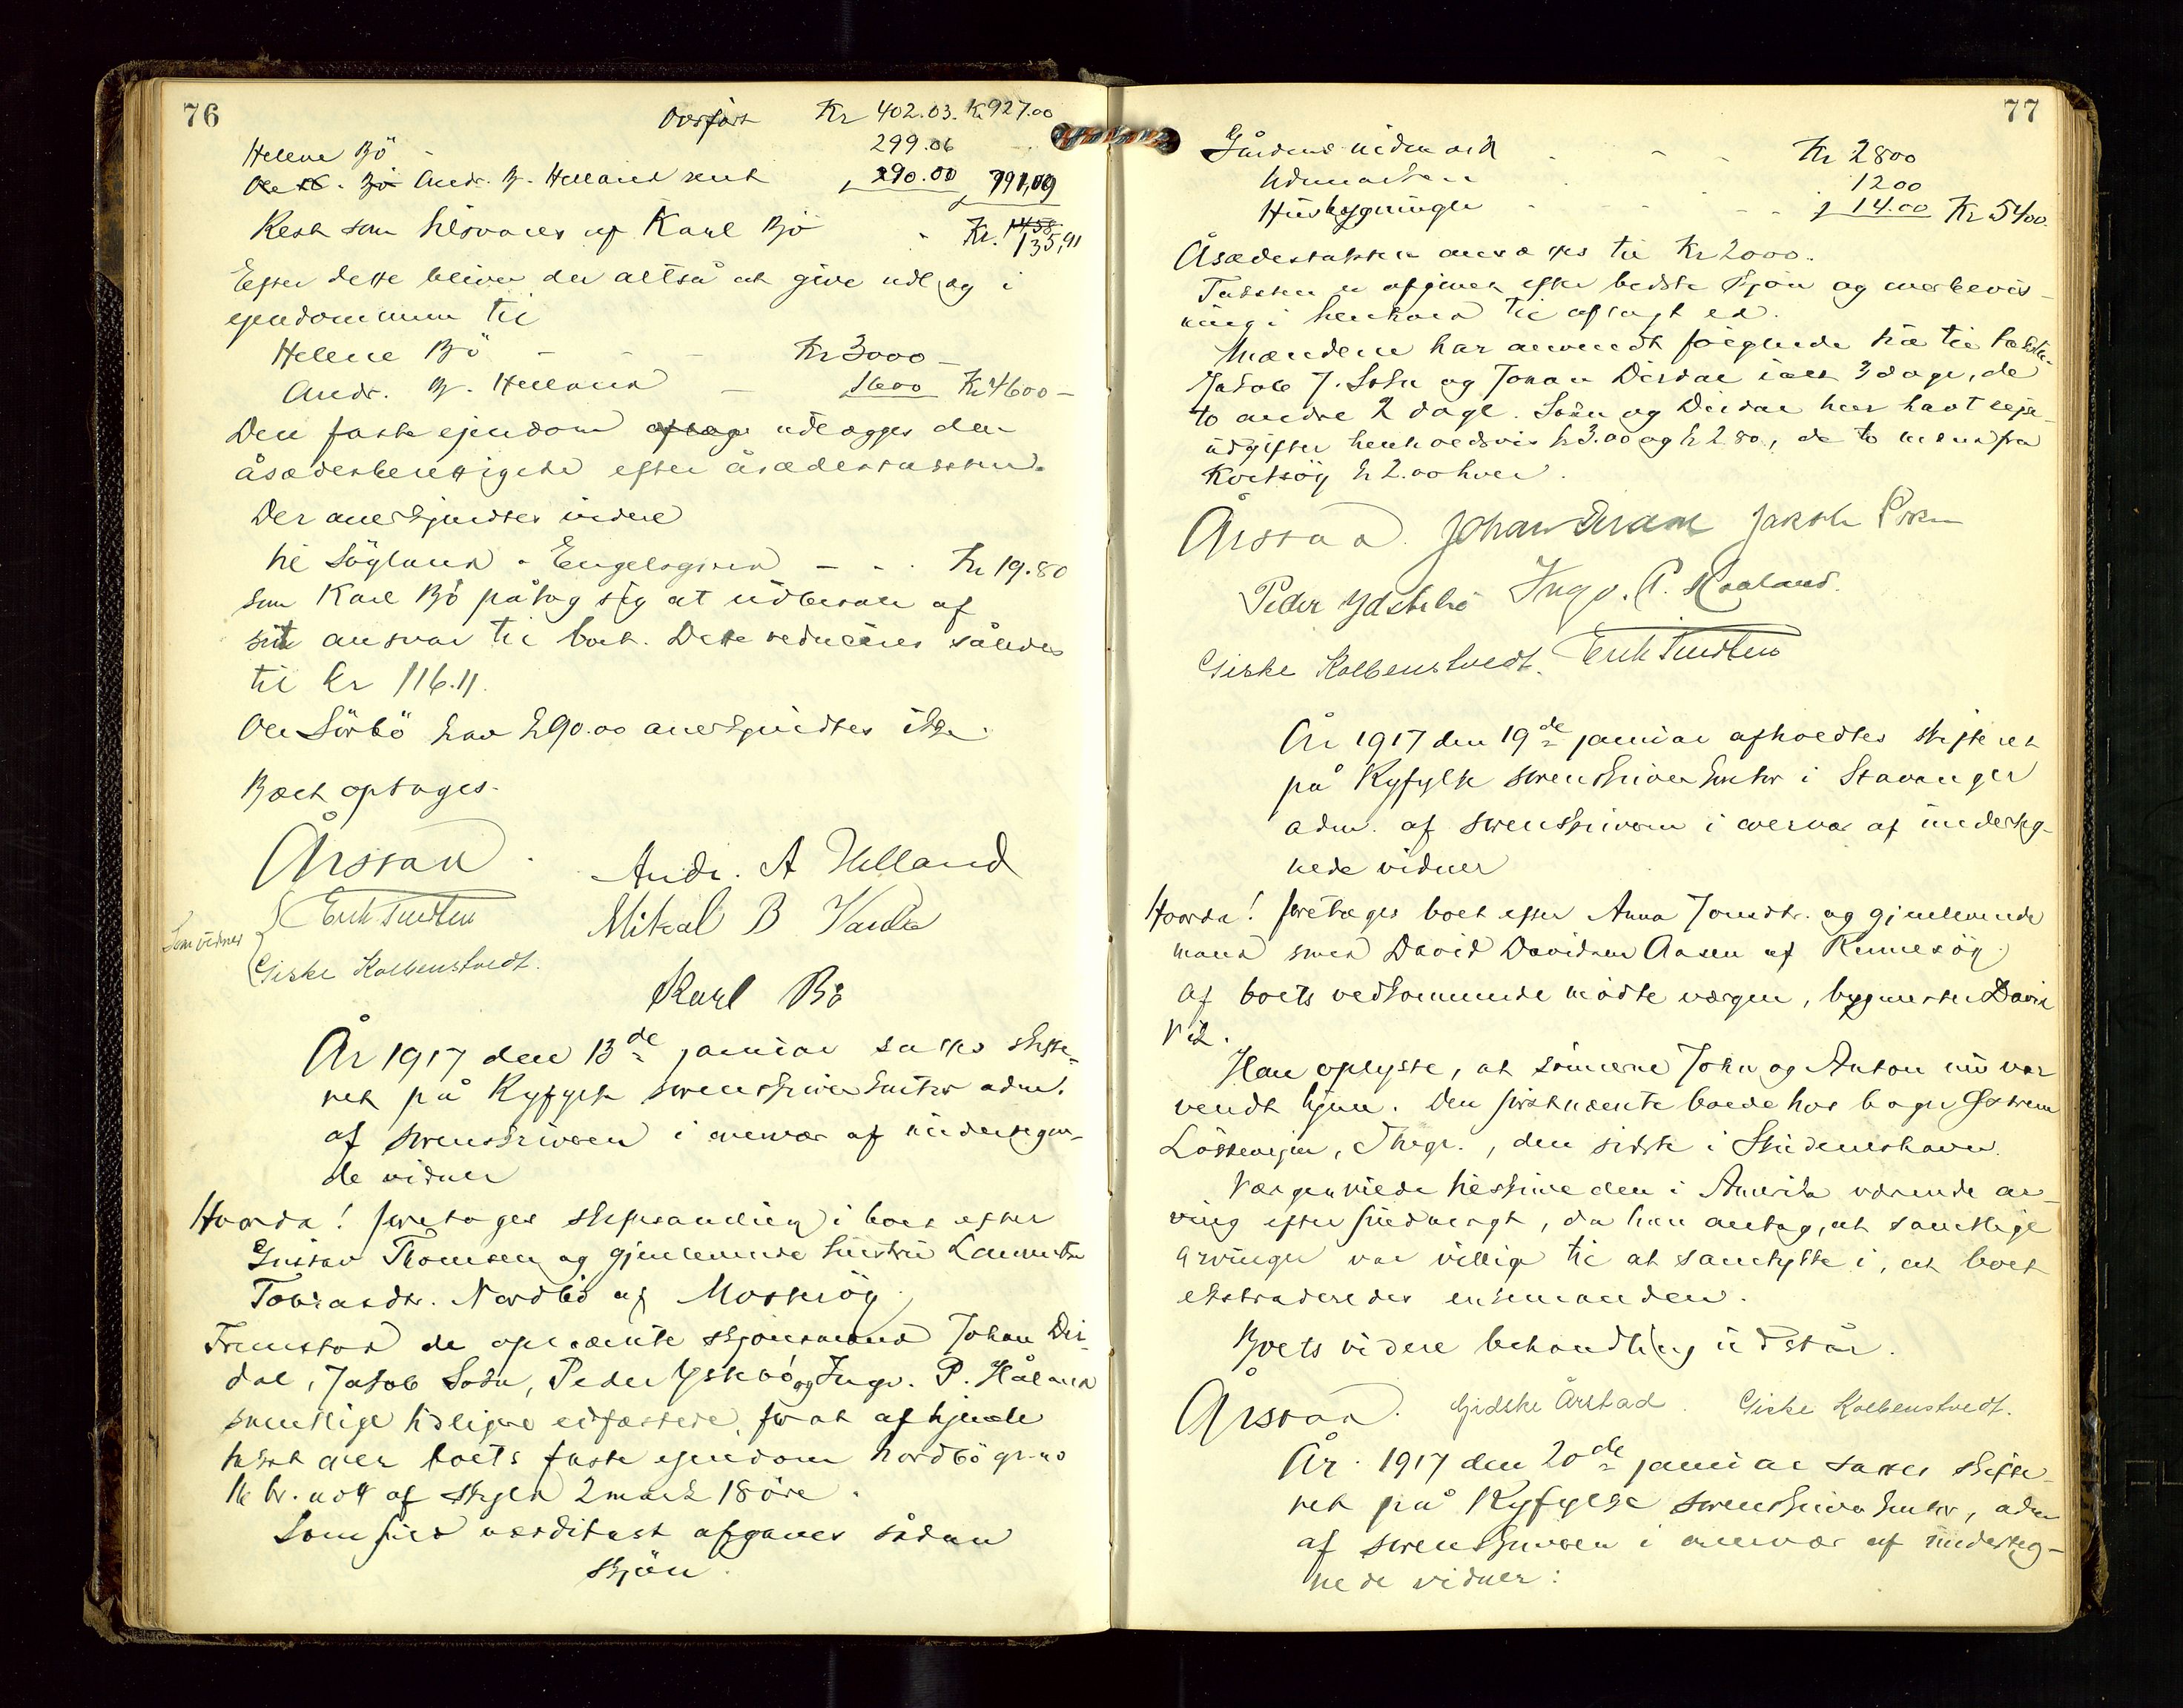 76
Overført Kr 402.03. Kr 927.00
Helene Bö - 299.06
Andr. B. Helland 290.00 791,09
Rest som tilsvares af Karl Bö Kr. 135,91
Efter dette bliver der altså at give udlæg i
ejendommen til
Helene Bö - - - Kr 3000 -
Andr. B. Helland - 1600 Kr 4600 -
Den faste ejendom udlægges den
åsædesberettigede efter åsædestaksten.
Der anerkjendtes videre
til Sögland & Engelsgjerd - - . Kr 19.80
som Karl Bö påtog sig at udbetale af
sit ansvar til boet. Dette reduceres således
til kr 116.11.
Ole Sörbö krav kr 90.00 anerkjendtes ikke.
Boet optages.
Årstad. Andr. A Helland
Som vidner Erik Knudsen Mikal B Vandle
Giske Kolbenstvedt.
Karl Bö
År 1917 den 13de januar sattes skifte-
ret på Ryfylke sorenskriverkontor adm.
af sorenskriveren i overvær af undertegne-
de vidner
Hvorda! foretoges skiftesamling i boet efter
Gustav Thomsen og gjenlevende hustru Laurentse
Tobiasdtr. Nordbö af Mosterøy
Fremstod de opnævnte skjönsmænd Johan Dir-
dal, Jakob Sokn, Peder Ydstebö og Ingv. P. Håland
samtlige tidligere edfæstede, for at afhjemle
takst over boets faste ejendom Nordbö gr. no
16 br. no 4 af skyld 2 mark 18 öre.
Som fuld værditakst afgaves sådan
skjön.
77
Gårdens indmark . - - - Kr 2800
Udmarken 1200
Husbygninger - - - - - 1400 Kr 5400.
Åsædestaksten ansættes til Kr 2000.
Taksten er afgivet efter bedste skjön og overbevis-
ning i henhold til aflagt ed.
Mændene har anvendt fölgende tid til taksten.
Jakob J. Sokn og Johan Dirdal ialt 3 dage, de
to andre 2 dage. Sokn og Dirdal har havt rejse-
udgifter henholdsvis kr 3.00 og kr 2.80, de to mænd fra
kr 2.00 hver.
Årstad. Johan Dirdal Jakob Sokn
Peder Ydstebö Ingv. P. Haaland.
Giske Kolbenstvedt. Erik Knudsen
År 1917 den 19de januar afholdtes skifteret
på Ryfylke sorenskriverkontor i Stavanger
adm. af sorenskriveren i overvær af underteg-
nede vidner
Hvorda! foretoges boet efter Anna Jonsdtr. og gjenlevende
mand smed David Davidsen Aasen af Rennesöy
Af boets vedkommende mödte værgen, bygmester David
Vik.
Han oplyste, at sönnerne John og Anton nu var
vendt hjem. Den förstnævnte boede hos bager
, den sidste i Skudeneshavn.
Værgen vilde tilskrive den i Amerika værende ar-
ving efter fuldmagt, da han antog, at samtlige
arvinger var villige til at samtykke i, at boet
ekstraderedes enkemanden.
Boets videre behandling udstår.
Årstad. Gidske Årstad. Giske Kolbenstvedt.
År 1917 den 20de januar sattes skifte-
ret på Ryfylke sorenskriverkontor, adm
af sorenskriveren i overvær af underteg-
nede vidner: